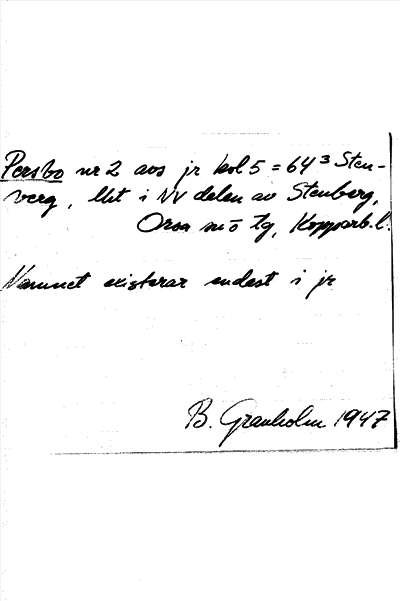 Persbo nr 2 avs jr kol 5 = 64³ Sten-
berg, likt i NV delen av Stenberg,
Orsa sn ö tg, Kopparb. l.
Namnet existerar endast i jr
B. Granholm 1947